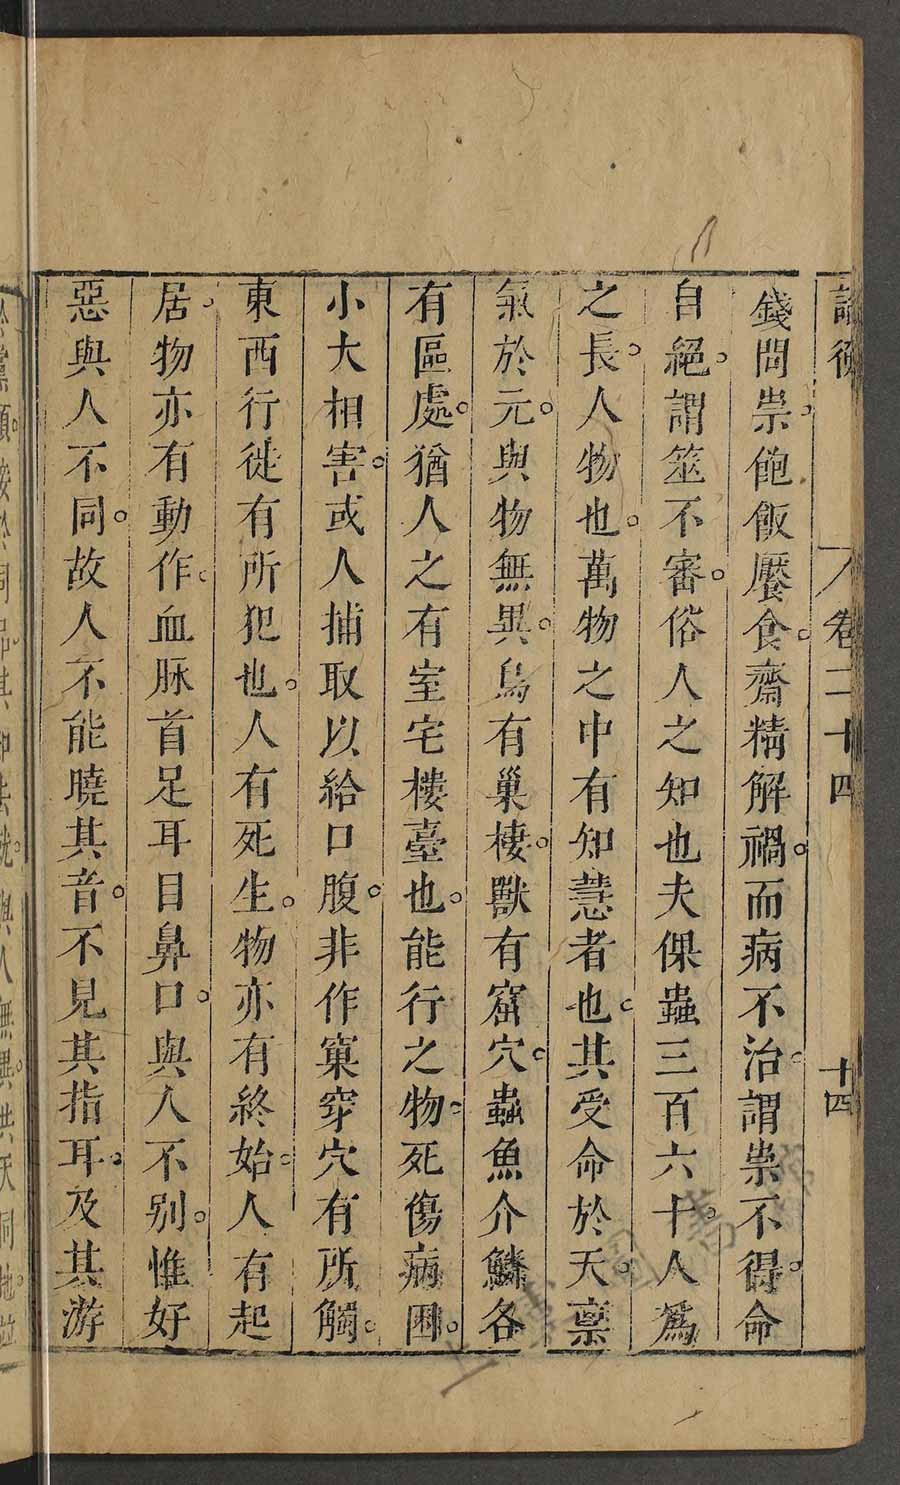 論衡 卷二十四 十四
錢問祟。飽飯饜食。齋精解禍。而病不治。謂祟不得。命
自絕。謂筮不審。俗人之知也夫倮蟲三百六十。人爲
之長。人物也。萬物之中有知慧者也。其受命於天。稟
氣於元。與物無異。鳥有巢棲。獸有窟穴。蟲魚介鱗各
有區處。猶人之有室宅樓臺也。能行之物。死傷病困。
小大相害。或人捕取以給口腹。非作窠穿穴有所觸。
東西行徙有所犯也。人有死生。物亦有終始。人有起
居。物亦有動作。血脉首足耳目鼻口。與人不别。惟好
惡與人不同。故人不能曉其音。不見其指耳。及其游